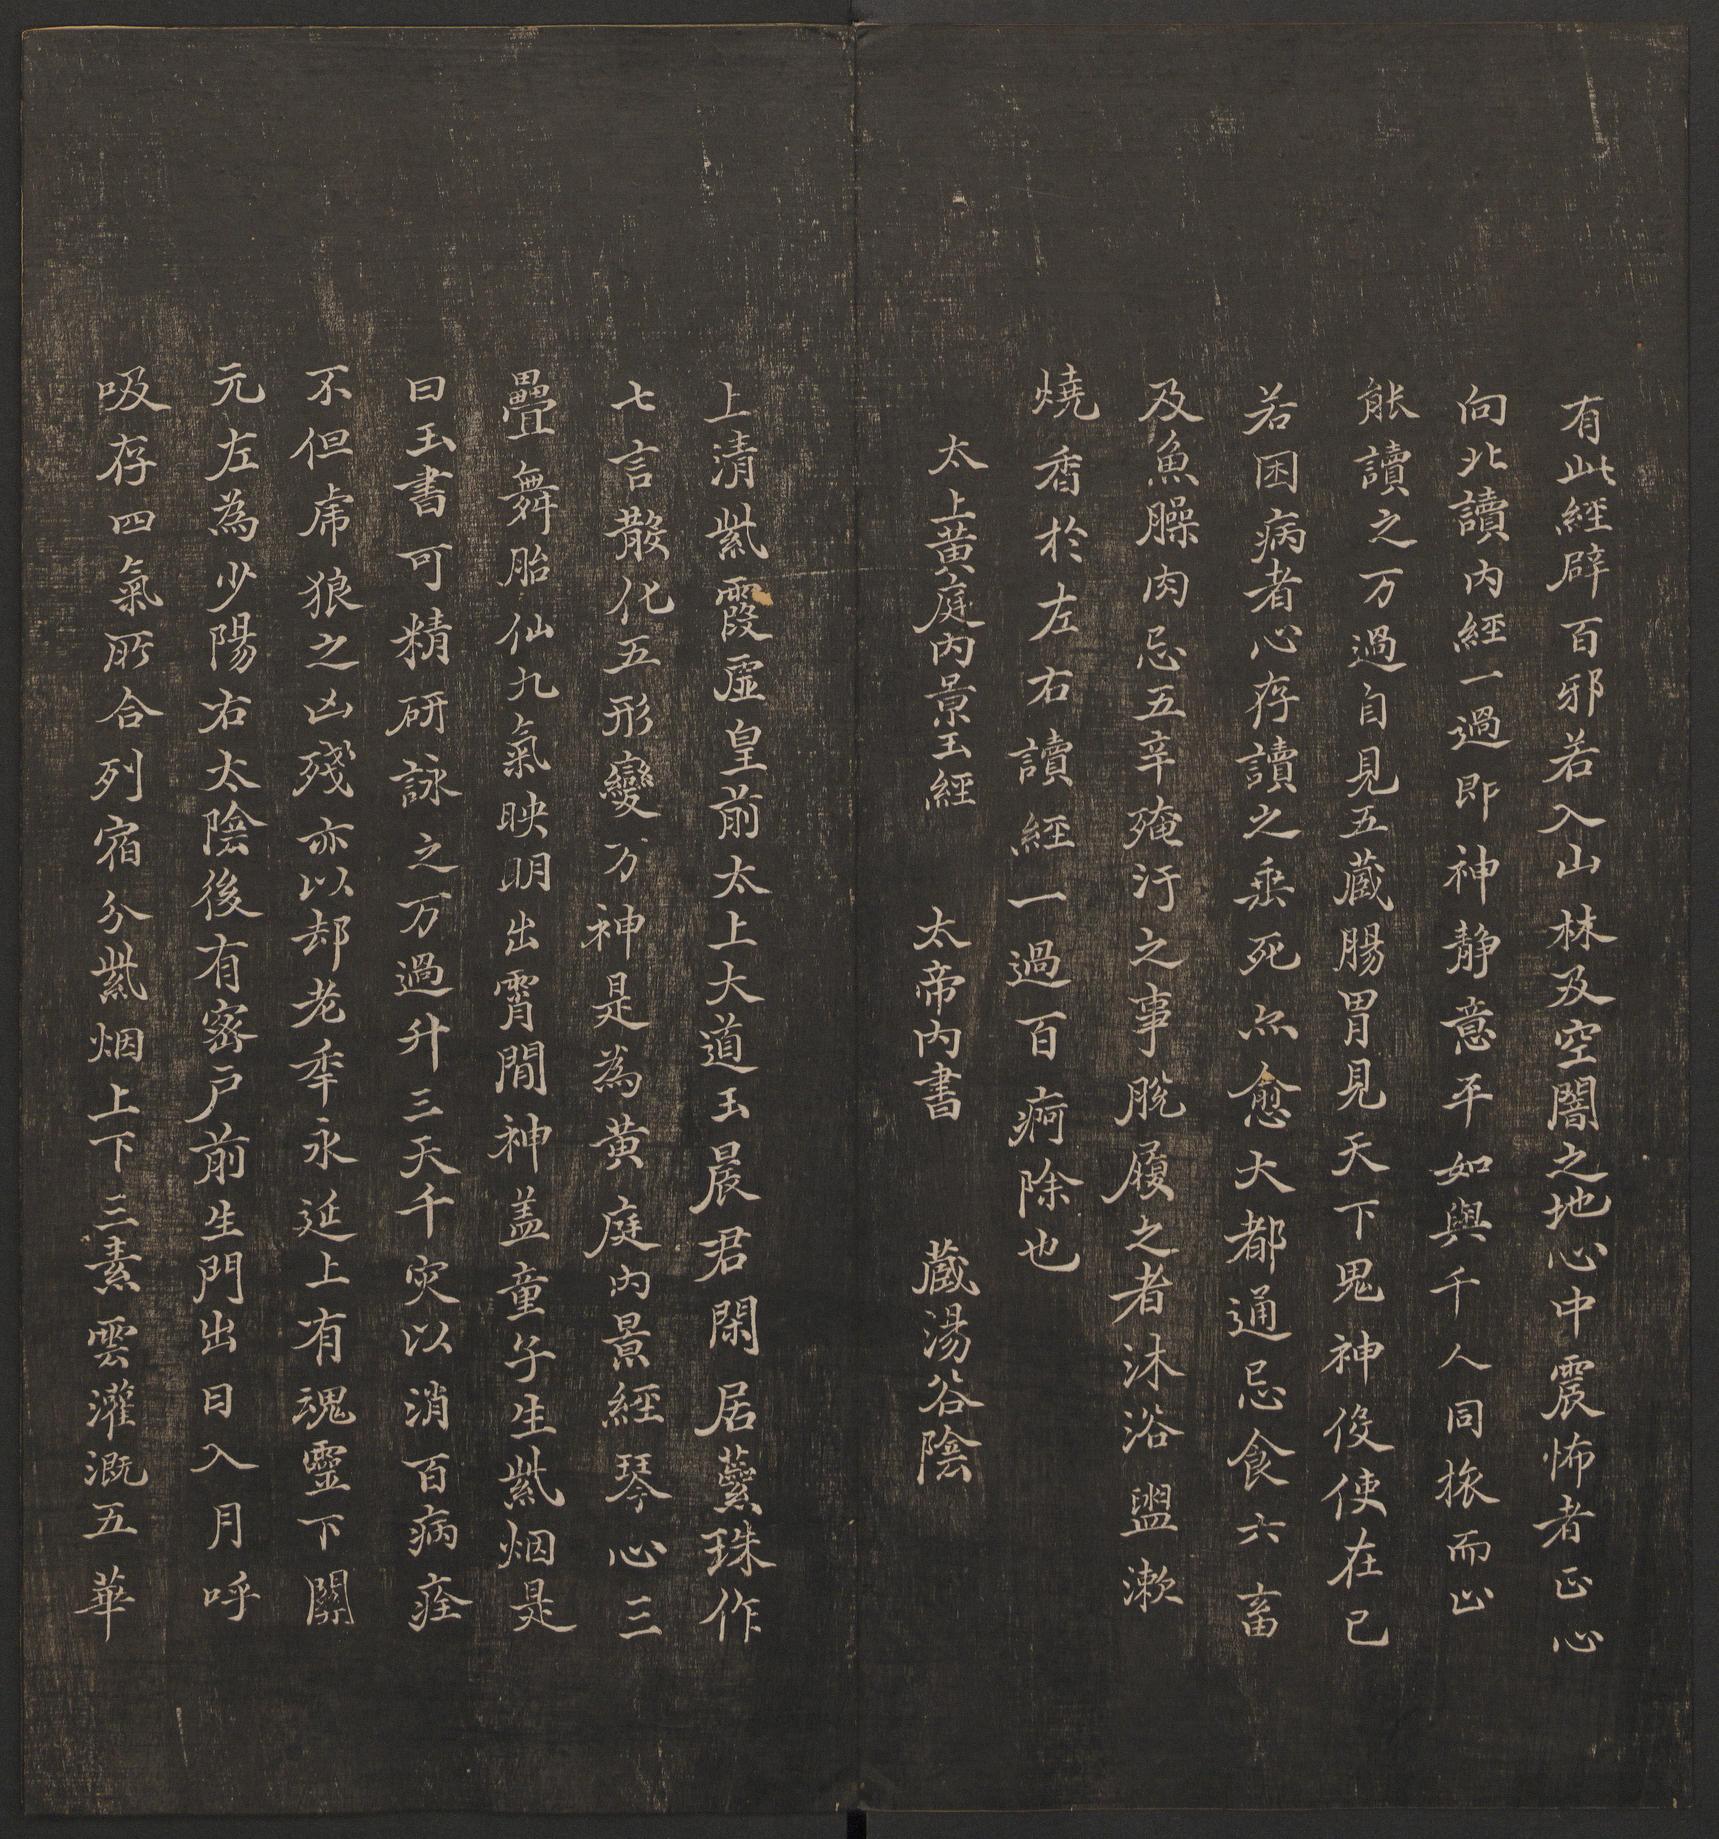 有此經辟百邪若入山林及空闇之地心中震怖者正心
向北讀内經一過即神静意平如與千人同旅而止
能讀之万過自見五蔵腸胃見天下鬼神役使在已
若困病者心存讀之垂死亦愈大都通忌食六畜
及魚臊肉忌五辛殗汙之事脱履之者沐浴盥漱
燒香於左右讀經一過百痾除也
太上黄庭内景玉經　太帝内書　蔵湯谷陰
上清紫霞虛皇前太上大道玉晨君閑居蘂珠作
七言散化五形變万神是為黄庭内景經琴心三
疊舞胎仙九氣映明出霄間神盖童子生紫烟是
曰玉書可精研詠之万過升三天千灾以消百病痊
不但虎狼之凶殘亦以却老年永延上有魂靈下關
元左為少陽右太陰後有密户前生門出日入月呼
吸存四氣所合列宿分紫烟上下三素雲灌溉五華